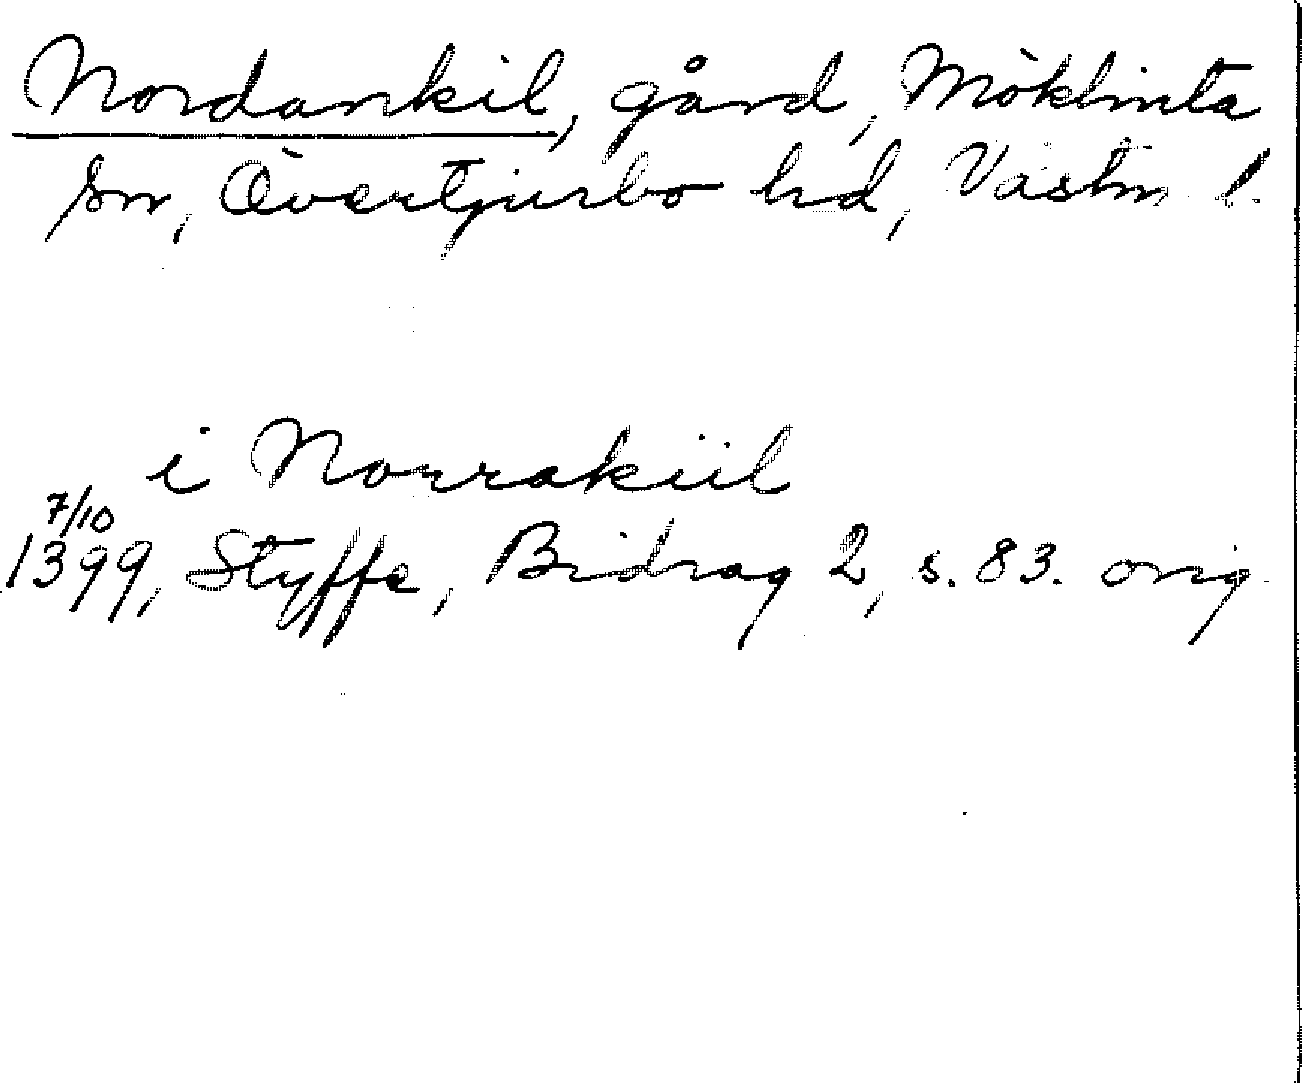 Nordankil, gård, Möklinta
sn, Övertjurbo hd, Västm l.
i Norrakiil
7/10
1399, Styffe, Bidrag 2, s. 83. orig.